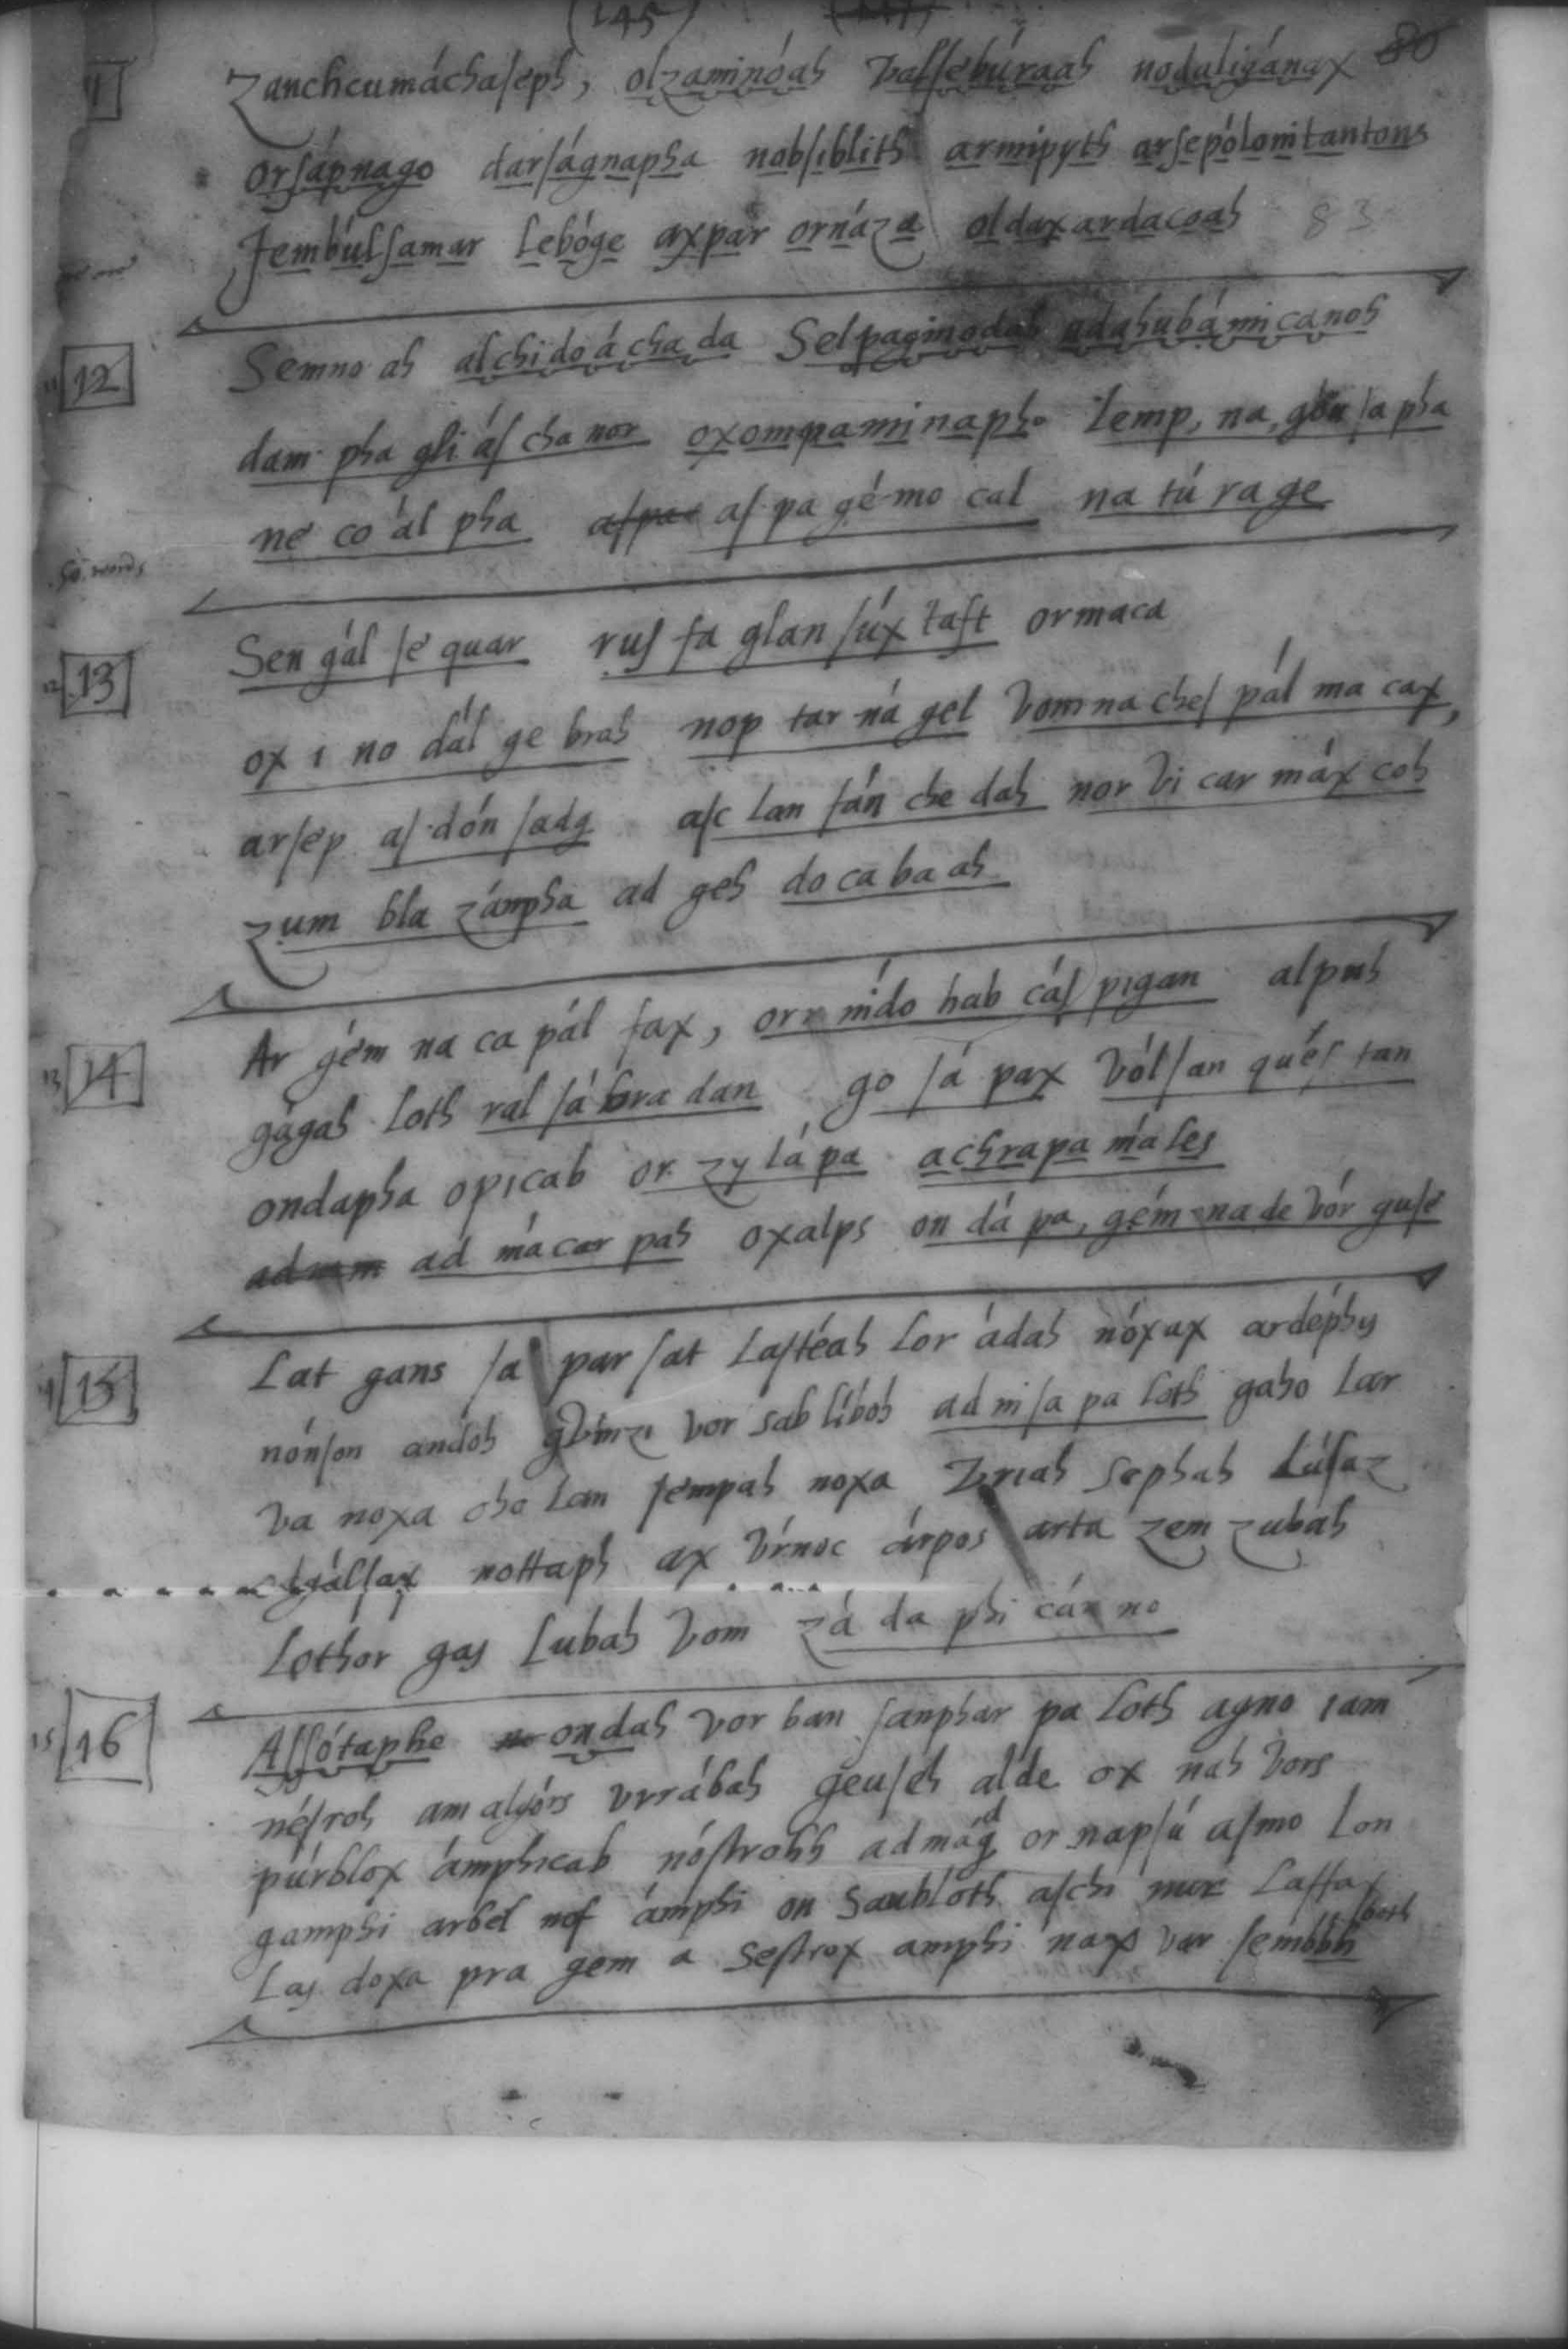 (145)
80
11 Zancheumáchaseph, olzaminóah Valsebúraah nodaligánax
orsápnago darságnapha nobsiblith armipyth arsepólonitantons
Jembúlsamar lebóge axpar ornáza oldaxardacoah 83
12 Semno ah al chi do á cha da Selpaginodah adahubámicanoh
dam pha gli ás cha nor oxompaminapho lemp, na, gón sa pha
ne co ál pha aspa as pa gé mo cal na tú ra ge
50. words
13 Sen gál se quar rus fa glan súx taft ormaca
ox i no dál ge brah nop tar ná gel Vom na ches pál ma cax,
arsep as dón sadg asc lan fán che dah nor Vi car máx coh
zum bla zánpha ad geh do ca ba ah
13 14 Ar gém na ca pál fax, orr nído hab cás pigan alpuh
gágah loth ral sá bra dan go sá pax Vólsan qués tan
ondapha opicab or zy lá pa achrapa máles
ad má car pah oxalps on dá pa, gém na de Vór guse
15 Lat gans sa par sat lastéah lor ádah nóxax ardéphy
nónson andoh gvinzi Vor sab líboh ad ni sa pa loth gaho lar
va noxa oho lan sempah noxa Vriah sephah lúsaz
nottaph ax Vrnoc árpos arta zem zubah
lothor gas lubah Vom zá da phi cán no
15 16 Assótaphe ondah vor ban sanphar pa loth agno iam
nésroh am algórs Vrrábah geuseh alde ox nah Vors
púrblox ámphicab nóstrohh admágd or napsú asmo lon
gamphi arbel nof ámphi on Saubloth aschi nur laffax
las doxa pra gem a Sestrox amphi nax var sembbh